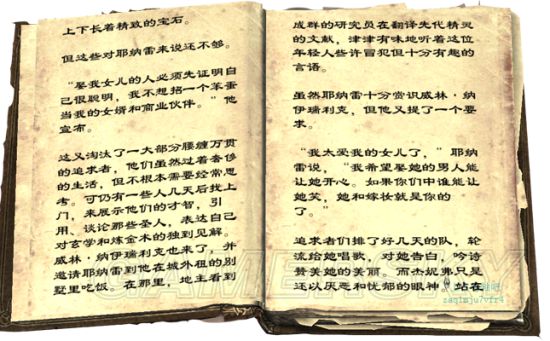 上下长着精致的宝石。
但这些对耶纳雷来说还不够。
“娶我女儿的人必须先证明自
己很聪明，我不想招一个笨蛋
当我的女婿和商业伙伴。”他
宣布。
这又淘汰了一大部分腰缠万贯
的追求者，他们虽然过着奢侈
的生活，但不根本需要经常思
考。可仍有一些人几天后找上
门，来展示他们的才智，引
用、谈论那些圣人，表达自己
对玄学和炼金术的独到见解。
威林·纳伊瑞利克也来了，并
邀请耶纳雷到他在城外租的别
墅里吃饭。在那里，地主看到
成群的研究员在翻译先代精灵
的文献，津津有味地听着这位
年轻人些许冒犯但十分有趣的
言语。
虽然耶纳雷十分赏识威林·纳
伊瑞利克，但他又提了一个要
求。
“我太爱我的女儿了，”耶纳
雷说，“我希望娶她的男人能
让她开心。如果你们中谁能让
她笑，她和嫁妆就是你的
了。”
追求者们排了好几天的队，轮
流给她唱歌，对她告白，吟诗
赞美她的美丽。而杰妮弗只是
还以厌恶和忧郁的眼神。站在
GAMERSKY
zaq1mju7vfr4